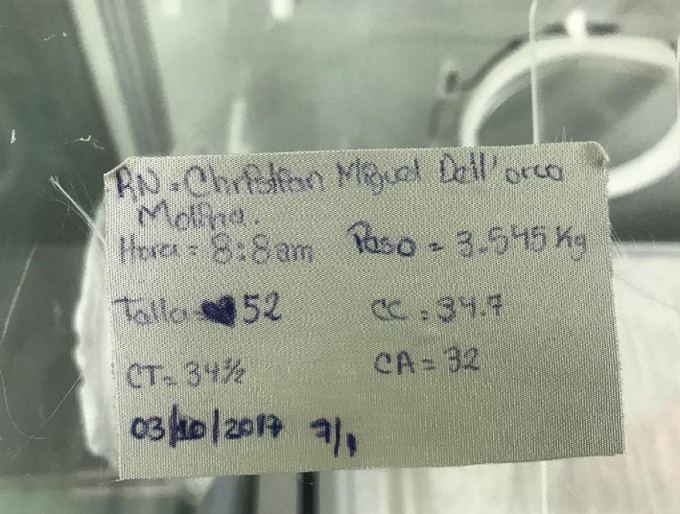 RN = Christian Miguel Dell'orco
Molina.
Hora = 8:8am Peso = 3.545 Kg
Talla = 52 CC = 34.7
CT = 34½ CA = 32
03/10/2017 7/1